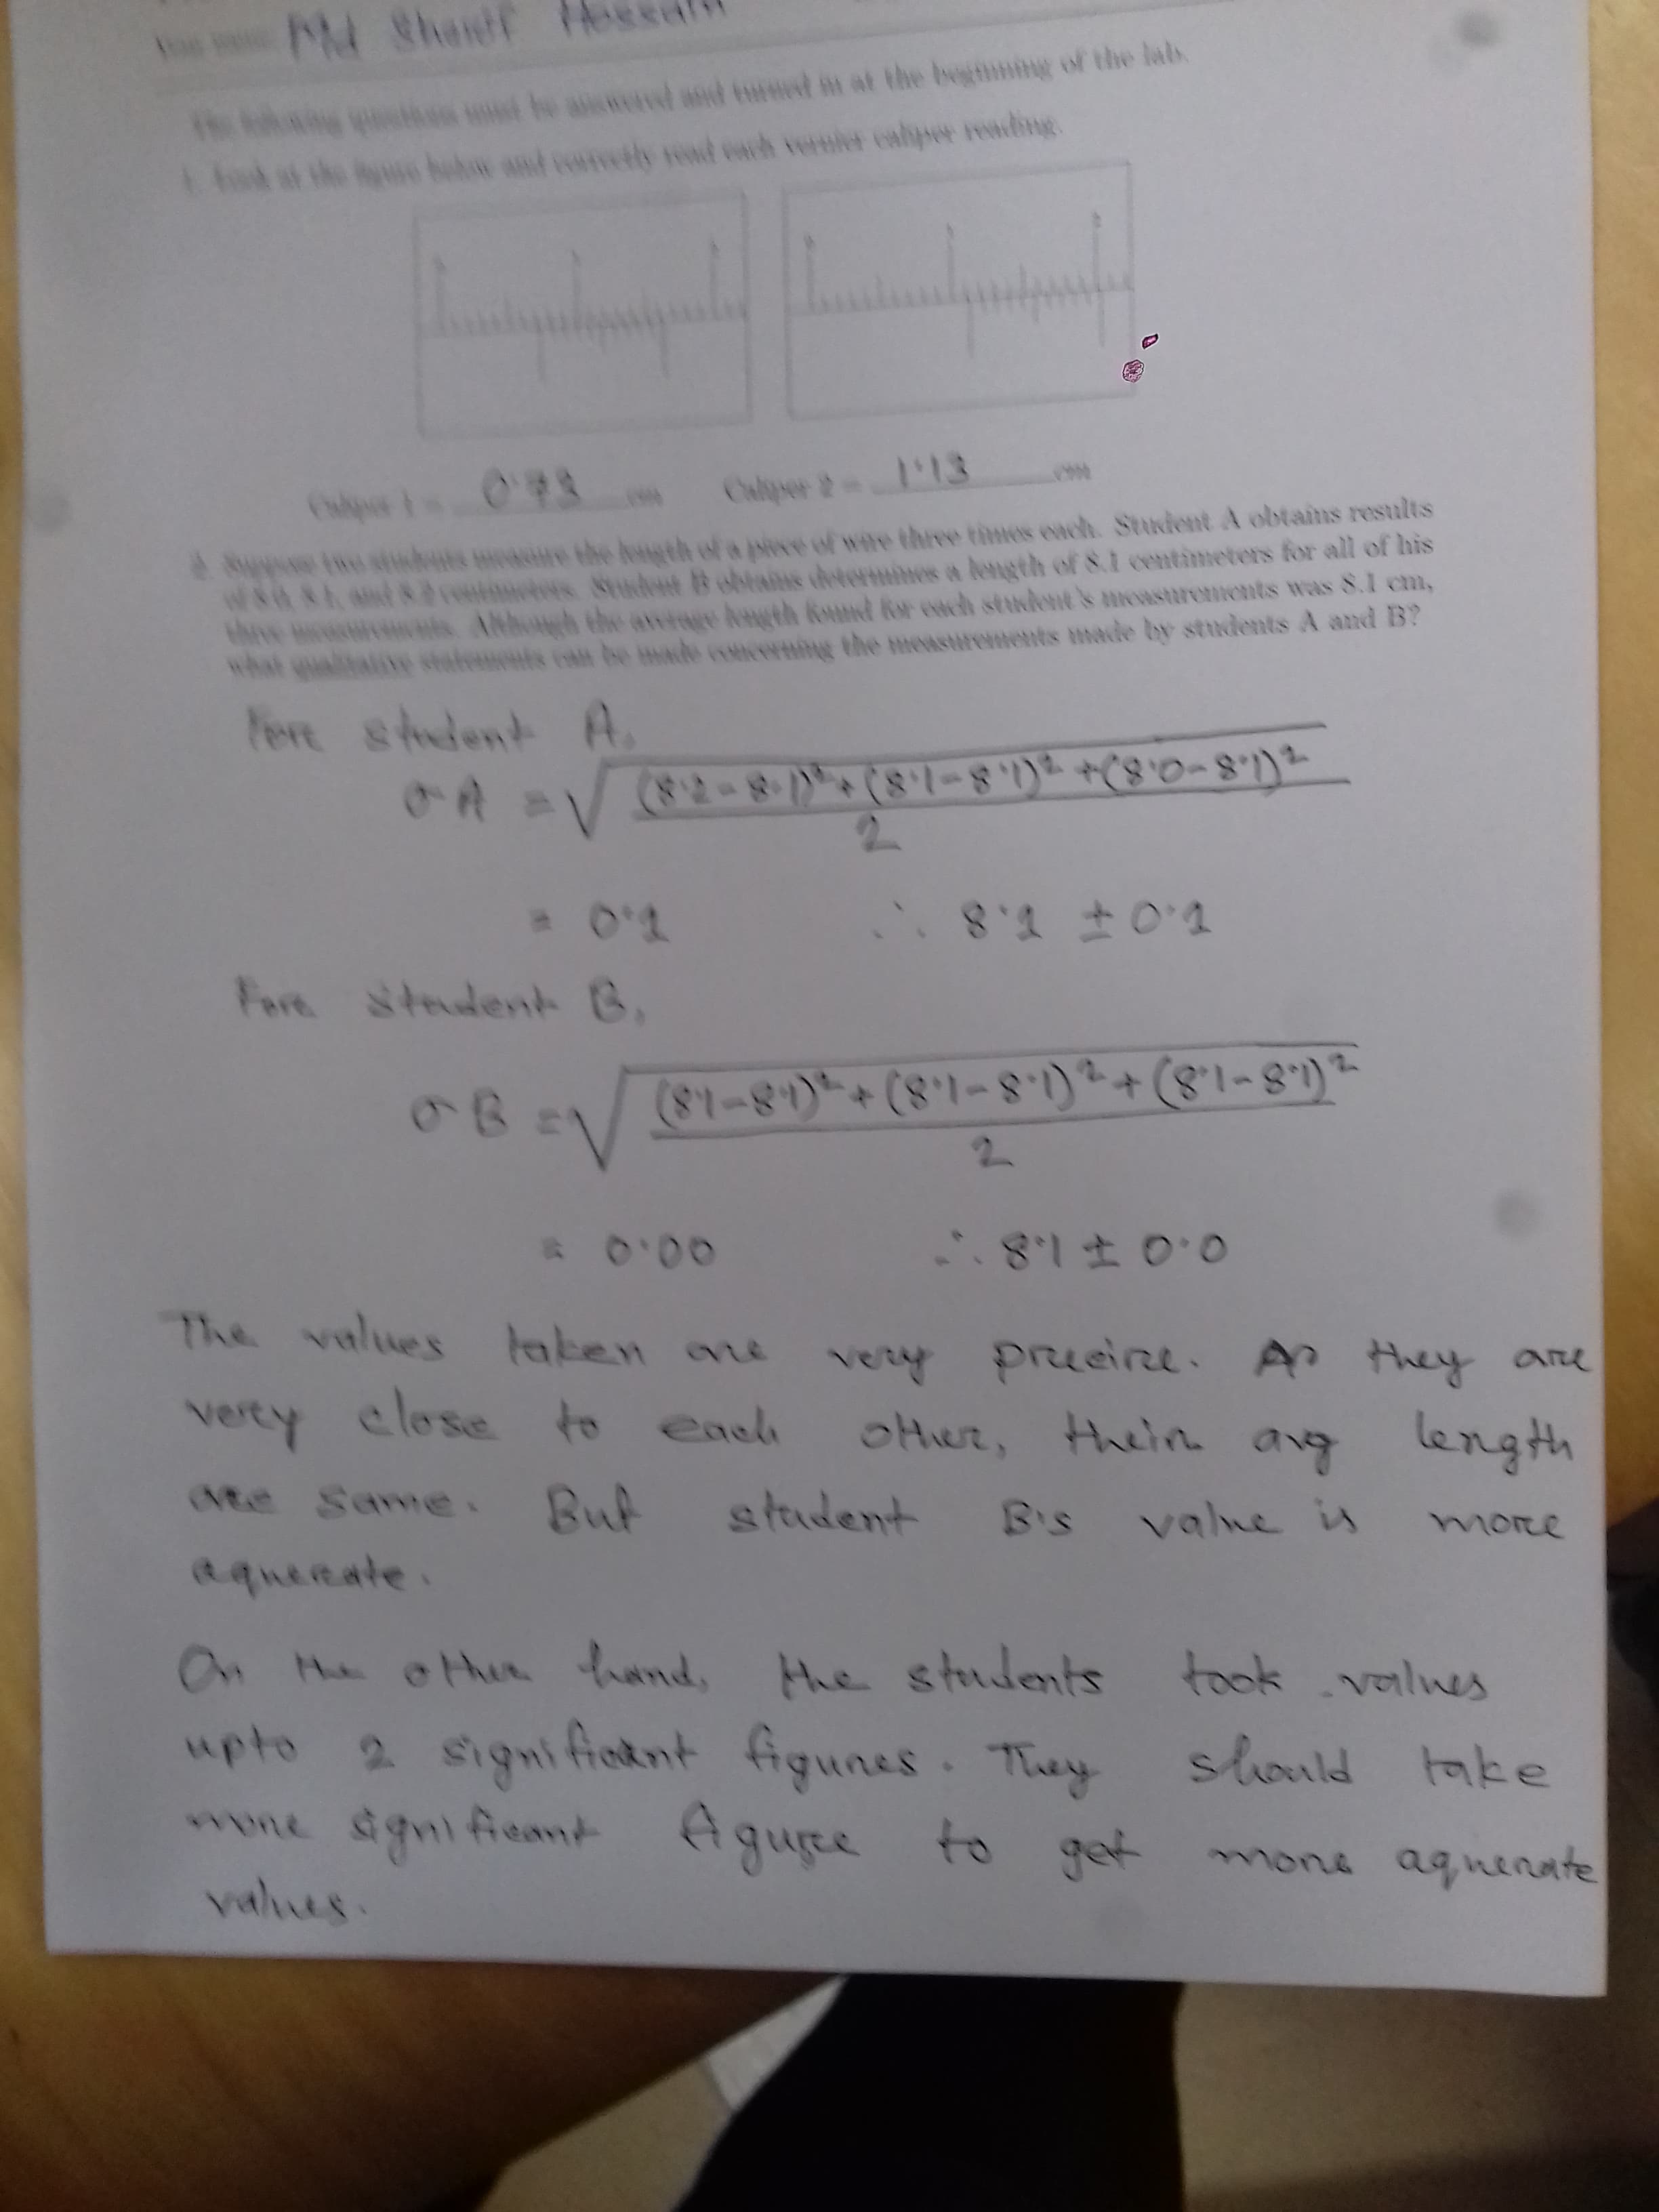 Md Sharif Hossain
The following questions must be answered and turned in at the beginning of the lab.
1. Look at the figure below and correctly read each vernier caliper reading.
Caliper 1 = 0.73 cm Caliper 2 = 1.13 cm
2. Suppose two students measure the length of a piece of wire three times each. Student A obtains results
of 8.0, 8.1, and 8.2 centimeters. Student B obtains determines a length of 8.1 centimeters for all of his
three measurements. Although the average length found for each student's measurements was 8.1 cm,
what qualitative statements can be made concerning the measurements made by students A and B?
Fore student A,
σA = √((8.2-8.1)²+(8.1-8.1)²+(8.0-8.1)²
2
= 0.1 ∴ 8.1 ± 0.1
Fore student B,
σB = √((8.1-8.1)²+(8.1-8.1)²+(8.1-8.1)²
2
= 0.00 ∴ 8.1 ± 0.0
The values taken are very precise. As they are
very close to each other, their avg length
are same. But student B's value is more
aqurate.
On the other hand, the students took values
upto 2 significant figures. They should take
more significant figure to get more aqurate
values.